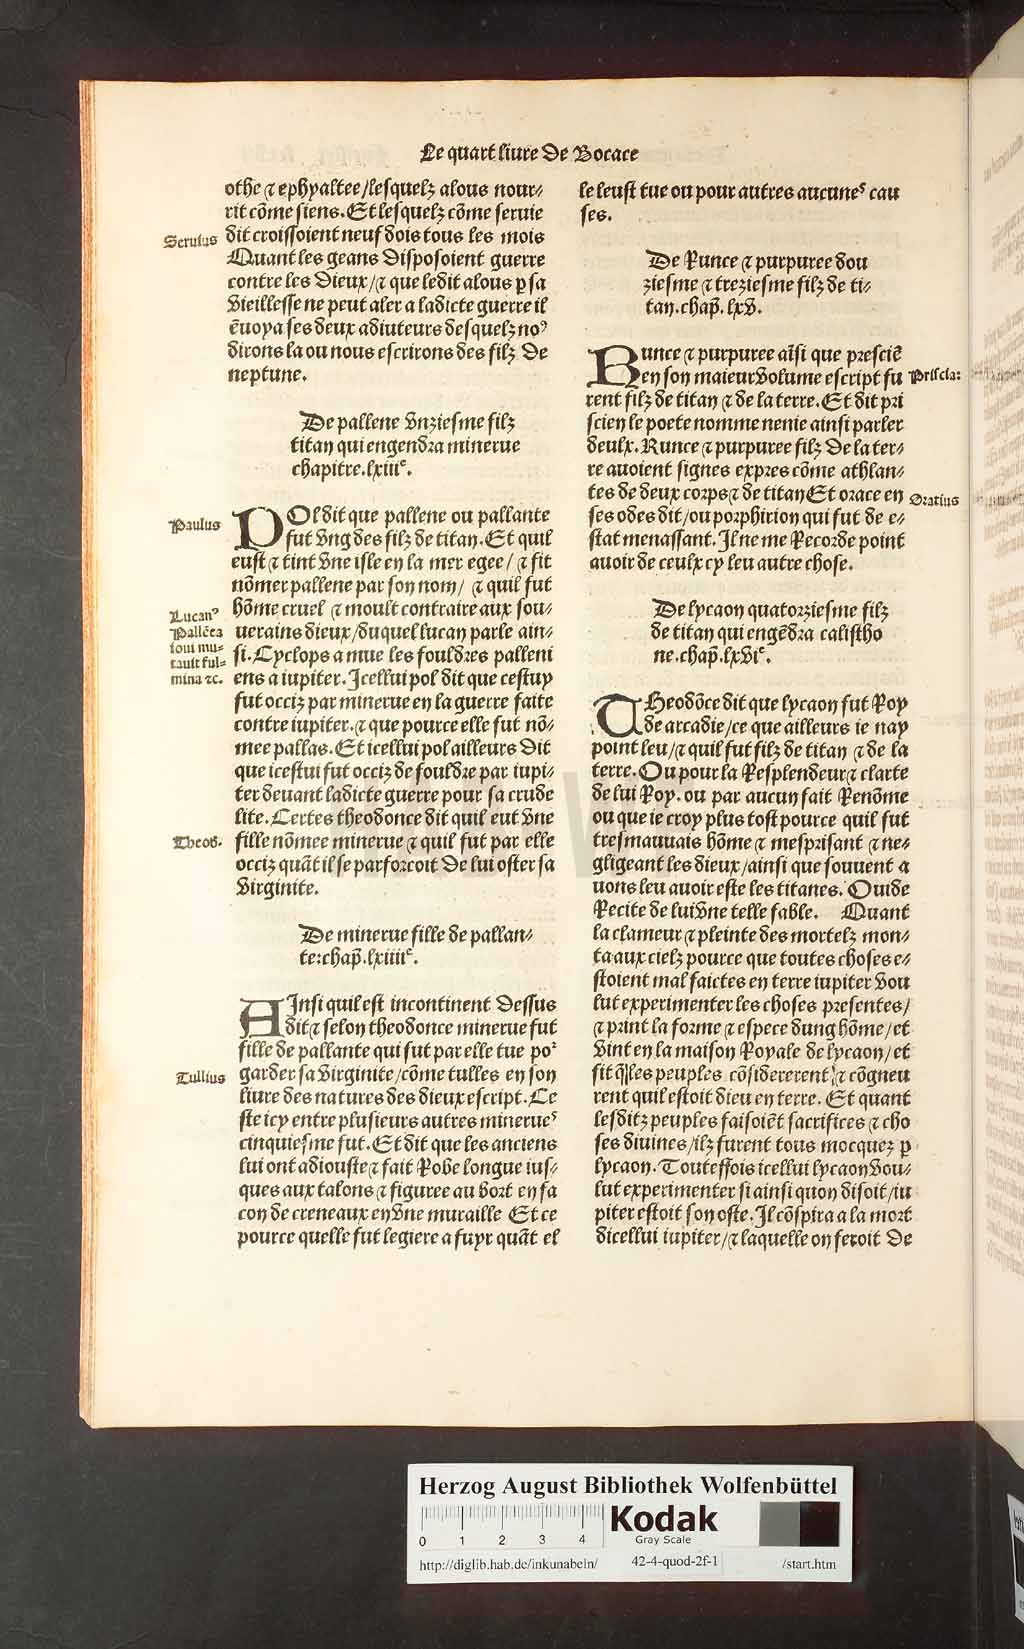 Le quart liure de Bocace
othe ⁊ ephyaltee/lesquelz alous nour⸗
rit cõme siens. Et lesquelz cõme seruie
Seruius
dit croissoient neuf dois tous les mois
Quant les geans disposoient guerre
contre les dieux/⁊ que ledit alous ꝑ sa
vieillesse ne peut aler a ladicte guerre il
ẽuoya ses deux adiuteurs desquelz noꝰ
dirons la ou nous escrirons des filz de
neptune.
De pallene vnziesme filz
titan qui engendra minerue
chapitre.lxiiiᵉ.
Paulus
POl dit que pallene ou pallante
fut vng des filz de titan. Et quil
eust ⁊ tint vne isle en la mer egee/ ⁊ fit
nõmer pallene par son nom/ ⁊ quil fut
Lucanꝰ
Pallẽea
ioui mu⸗
tauit ful⸗
mina ⁊c.
hõme cruel ⁊ moult contraire aux sou⸗
uerains dieux/duquel lucan parle ain⸗
si. Cyclops a mue les fouldres palleni
ens a iupiter. Icellui pol dit que cestuy
fut occiz par minerue en la guerre faite
contre iupiter. ⁊ que pource elle fut nõ⸗
mee pallas. Et icellui pol ailleurs dit
que icestui fut occiz de fouldre par iupi⸗
ter deuant ladicte guerre pour sa crude
lite. Certes theodonce dit quil eut vne
Theod.
fille nõmee minerue ⁊ quil fut par elle
occiz quãt il se parforcoit de lui oster sa
virginite.
De minerue fille de pallan⸗
te:chap̃.lxiiiiᵉ.
AInsi quil est incontinent dessus
dit ⁊ selon theodonce minerue fut
fille de pallante qui fut par elle tue poᷣ
Tullius
garder sa virginite/cõme tulles en son
liure des natures des dieux escript. Ce
ste icy entre plusieurs autres minerueˢ
cinquiesme fut. Et dit que les anciens
lui ont adiouste ⁊ fait robe longue ius⸗
ques aux talons ⁊ figuree au bort en fa
con de creneaux en vne muraille Et ce
pource quelle fut legiere a fuyr quãt el
le leust tue ou pour autres aucuneˢ cau
ses.
De Runce ⁊ purpuree dou
ziesme ⁊ treziesme filz de ti⸗
tan.chap̃.lxv.
RUnce ⁊ purpuree aĩsi que presciẽ
en son maieur volume escript fu
Priscia:
rent filz de titan ⁊ de la terre. Et dit pri
scien le poete nomme nenie ainsi parler
deulx. Runce ⁊ purpuree filz de la ter⸗
re auoient signes expres cõme athlan⸗
tes de deux corps ⁊ de titan Et orace en
Oratius
ses odes dit/ou porphirion qui fut de e⸗
stat menassant. Il ne me recorde point
auoir de ceulx cy leu autre chose.
De lycaon quatorziesme filz
de titan qui engẽdra calistho
ne.chap̃.lxviᵉ.
THeodõce dit que lycaon fut roy
de arcadie/ce que ailleurs ie nay
point leu/⁊ quil fut filz de titan ⁊ de la
terre. Ou pour la resplendeur ⁊ clarte
de lui roy. ou par aucun fait renõme
ou que ie croy plus tost pource quil fut
tresmauuais hõme ⁊ mesprisant ⁊ ne⸗
gligeant les dieux/ainsi que souuent a
uons leu auoir este les titanes. Ouide
recite de lui vne telle fable. Quant
la clameur ⁊ pleinte des mortelz mon⸗
ta aux cielz pource que toutes choses e⸗
stoient mal faictes en terre iupiter vou
lut experimenter les choses presentes/
⁊ print la forme ⁊ espece dung hõme/et
vint en la maison royale de lycaon/et
fit q̃ les peuples cõsidererent ⁊ cõgneu
rent quil estoit dieu en terre. Et quant
lesditz peuples faisoiẽt sacrifices ⁊ cho
ses diuines/ilz furent tous mocquez ꝑ
lycaon. Touteffois icellui lycaon vou⸗
lut experimenter si ainsi quon disoit/iu
piter estoit son oste. Il cõspira a la mort
dicellui iupiter/⁊ laquelle on feroit de
Herzog August Bibliothek Wolfenbüttel
0 1 2 3 4
Kodak
Gray Scale
http://diglib.hab.de/inkunabeln/ 42-4-quod-2f-1 /start.htm